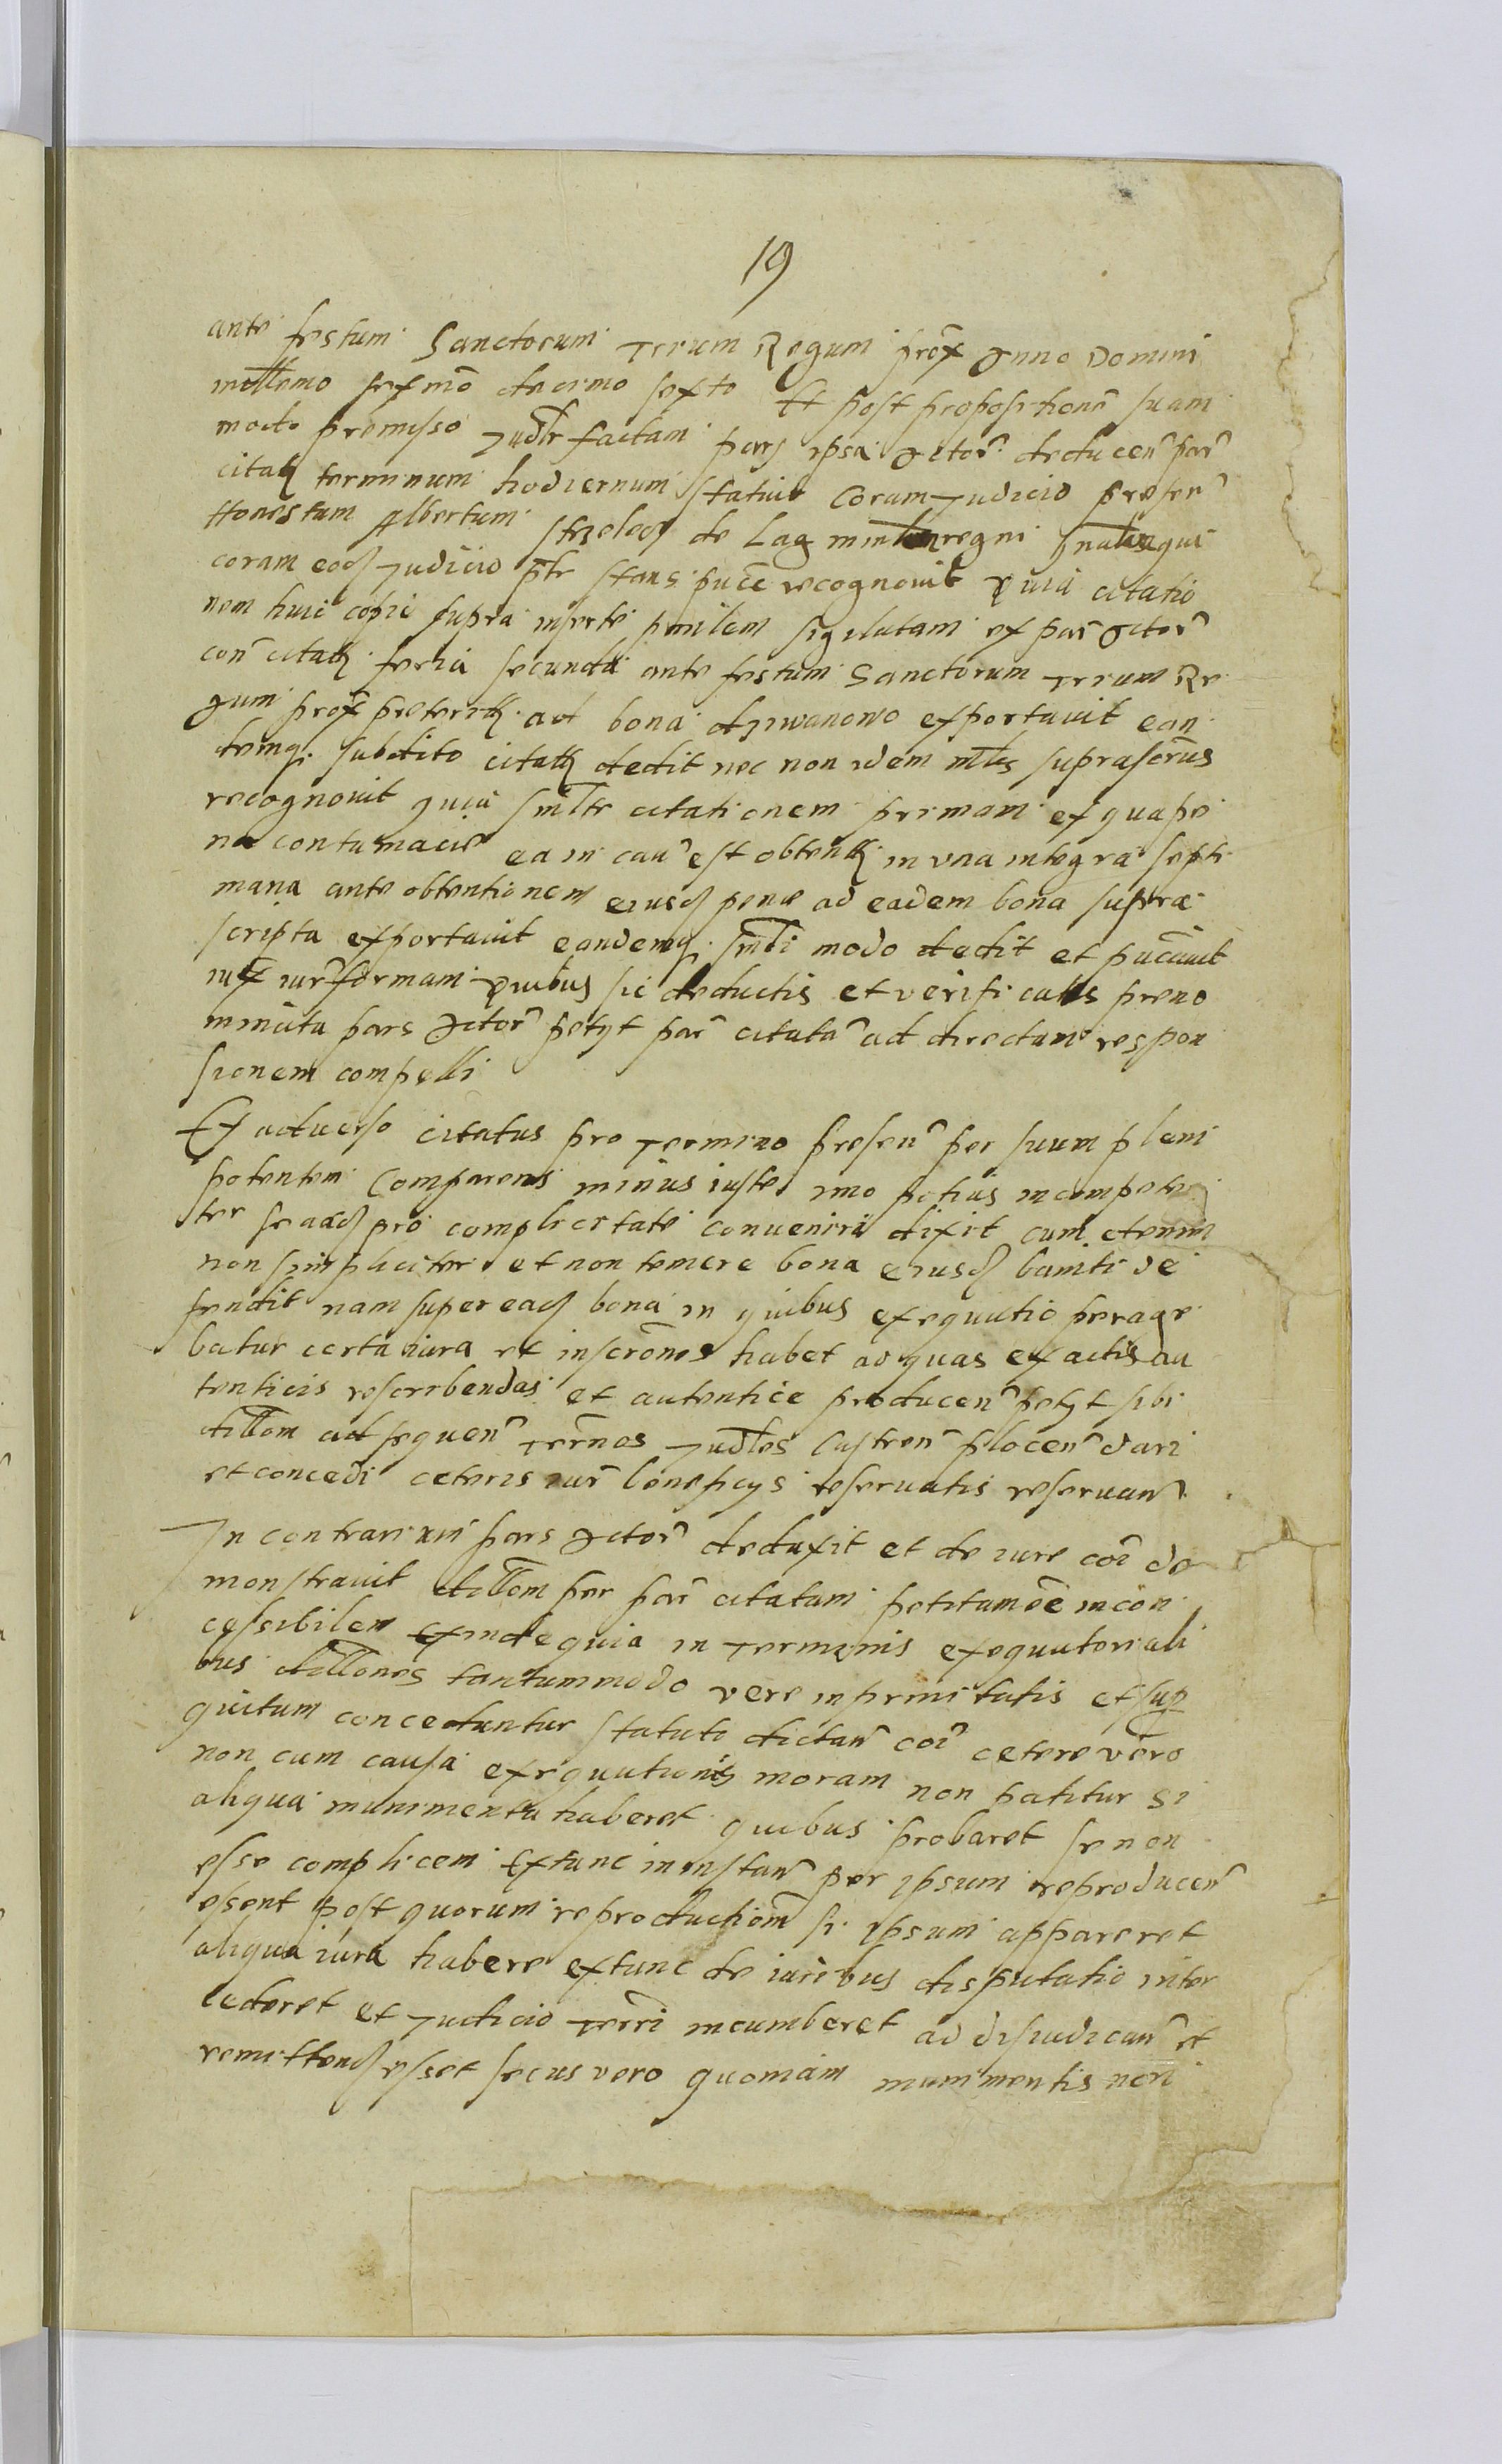 19
ante festum Sanctorum Trium Regum prox̃ Anno Domini
millemo sexmo decimo sexto Et post propositionẽ suam
modo premisso Judlr factam pars ipsa Actor̃ deducen̄ par̃
citatę terminum hodiernum statuit Coram Judicio presen̄
Honestum Albertum de Lag minlem regni gnalem qui
coram eodę Judicio p̃lr stans pucẽ recognovit quia citatio
nem huic copie supra inserte similem sigilatam ex par̃ Actor̃
con̄ citatę feria secunda ante festum Sanctorum Trium Re
gum prox̃ preterit ad bona dziwanowo exportauit ean
demq; subdito citatę dedit nec non idem mlis suprascrus
recognouit quia smlr citationem primam ex qua pe
na contumacie ea in cau̅ est obtentę in vna integra septi
mana ante obtentionem eiusdę pene ad eadem bona supra
scripta exportauit eandemq; smli modo dedit et pucauit
iux̃ iur̃ formam Quibus sic deductis et verificatis preno
minata pars Actor̃ petyt par̃ citatã ad directam respon
sionem compelli
Ex aduerso citatus pro Termino presen̄ per suum pleni
potentem Comparens minus iuste imo potius incompeten
ter se addę pro complicitate conueniri dixit cum etenim
non simpliciter et non temere bona eiusdę baniti de
fendit nam super eadę bona in quibus exequutio perage
batur certa iura et inscrõnes habet ad quas ex actis au
tenticis rescribendas et autentice producen̄ petyt sibi
dillom ad sequen̄ Termos Judles Castren̄ plocen̄ dari
et concedi ceteris iur̃ beneficys reseruatis reseruan̄
In contrarium pars Actor̃ deduxit et de iure coi de
monstrauit dillom per par̃ citatam petitam eẽ incon
cessibilem Exinde quia in Terminis exequutoriali
bus dillones tantummodo vere infirmitatis et sup
quitum conceduntur statuto dictan̄ coi cetere vero
non cum causa exequutionis moram non patitur si
aliqua munimenta haberet quibus probaret se non
esse complicem Extunc in instan̄ per ipsum reproducen̄
essent post quorum reproductiom si ipsum appareret
aliqua iura habere extunc de iuribus disputatio inter
cederet et Judicio Terri incumberet ad disiudican̄ et
remittendę esset secus vero quoniam munimentis non